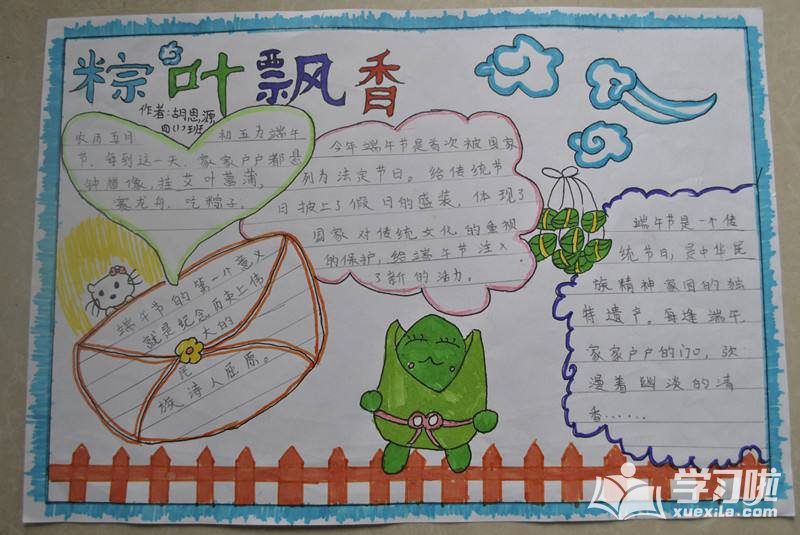 粽叶飘香
作者:胡恩源
四(1)班
农历五月 初五为端午
节,每到这一天,家家户户都是
钟馗像,挂艾叶菖蒲,
赛龙舟,吃粽子。
今年端午节是首次被国家
列为法定节日。给传统节
日披上了假日的盛装,体现了
国家对传统文化的重视
的保护,给端午节注入
了新的活力。
端午节是一个传
统节日,是中华民
族精神家园的独
特遗产。每逢端午
家家户户的门口,弥
漫着幽淡的清
香……
端午节的第一个意义
就是纪念历史上伟
大的
民
族诗人屈原。
学习啦
xuexila.com